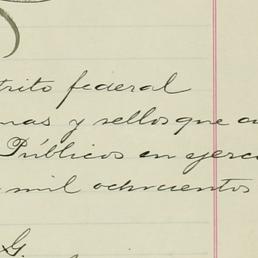 trito federal
mas y sellos que au
Públicos en ejerc
mil ochocientos
G.